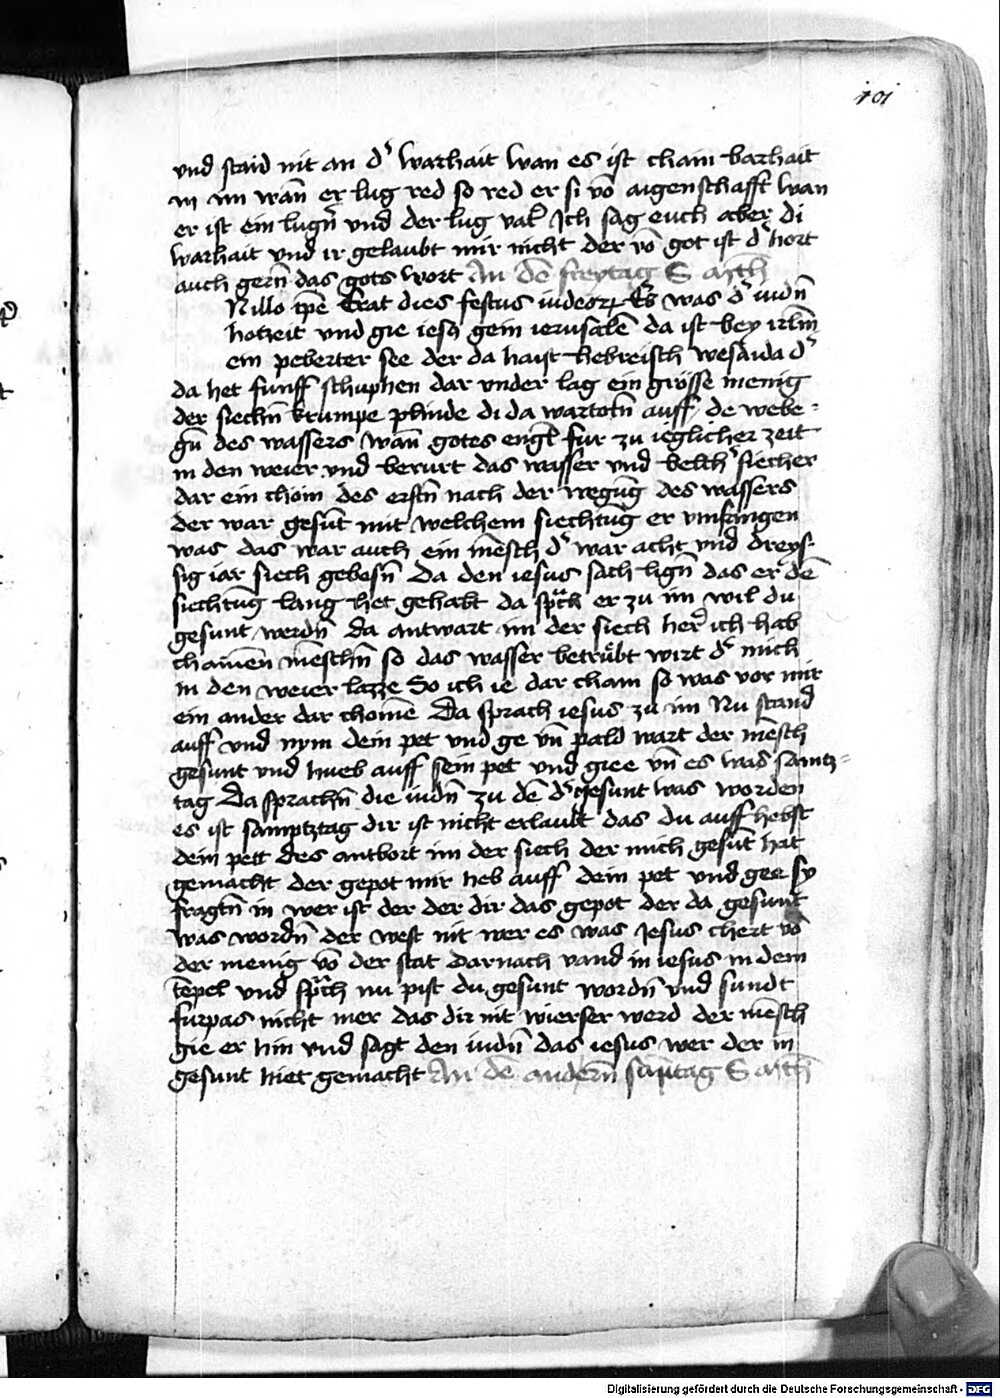 101
vnd staid nit an d' warhait wan es ist chain barhait
in im wan̄ er lug red so red er si vō aigenschafft wan
er ist ein lugn̄ vnd der lug vat' Ich sag euch aber di
warhait vnd ir gelaubt mir nicht der vō got ist d' hort
auch gern̄ das gots wort An dē freytag S Mth̄
N illo tp̄e Erat dies festus iudeoꝝ Es was d' iudn̄
hotzeit vnd gie iesq gein ierusalē da ist bey irl̄m
ein peberter see der da haist hebreisch wesaida d'
da het funff schuphen dar vnder lag ein grösse menig
der siechn̄ krumpe plinde di da wartotn̄ auff de webe=
gū des wassers wan̄ gotes engl̄ fur zu ieglicher zeit
in den weier vnd berurt das wasser vnd belch' siecher
dar ein chom des erstn̄ nach der wegūg des wassers
der war gesūt mit welchem siechtūg er vmfangen
was das war auch ein mēsch d' war acht vnd dreys=
sig iar siech gebesn̄ Da den iesus sach lign̄ das er dē
siechtūg lang het gehabt da sp̄ch er zu im wil du
gesunt werdn̄ da antwart im der siech her' ich hab
chainen mēschn̄ so das wasser betrübt wirt d' mich
in den weier lazze So ich ie dar cham so was vor mir
ein ander dar chomē Da sprach iesus zu im Nu stand
auff vnd nym dein pet vnd ge vn̄ pald wart der mēsch
gesunt vnd hueb auff sein pet vnd giee vn̄ es was samtz=
tag Da sprachn̄ die iudn̄ zu dē d' gesunt was worden
es ist samptztag dir ist nicht erlaubt das du auff hebst
dein pett des antbort im der siech der mich gesūt hat
gemacht der gepot mir heb auff dein pet vnd gee sy
fragtn̄ in wer ist der der dir das gepot der da gesunt
was wordn̄ der west nit wer es was Jesus chert vō
der menig vō der stat darnach vand in iesus in dem
tēpel vnd sp̄ch nu pist du gesunt wordn̄ vnd sundt
furpas nicht mer das dir nit wierser werd der mēsch
gie er hin vnd sagt den iudn̄ das iesus wer der in
gesunt hiet gemacht An dē andern̄ sūntag S Mth̄
Digitalisierung gefördert durch die Deutsche Forschungsgemeinschaft - DFG